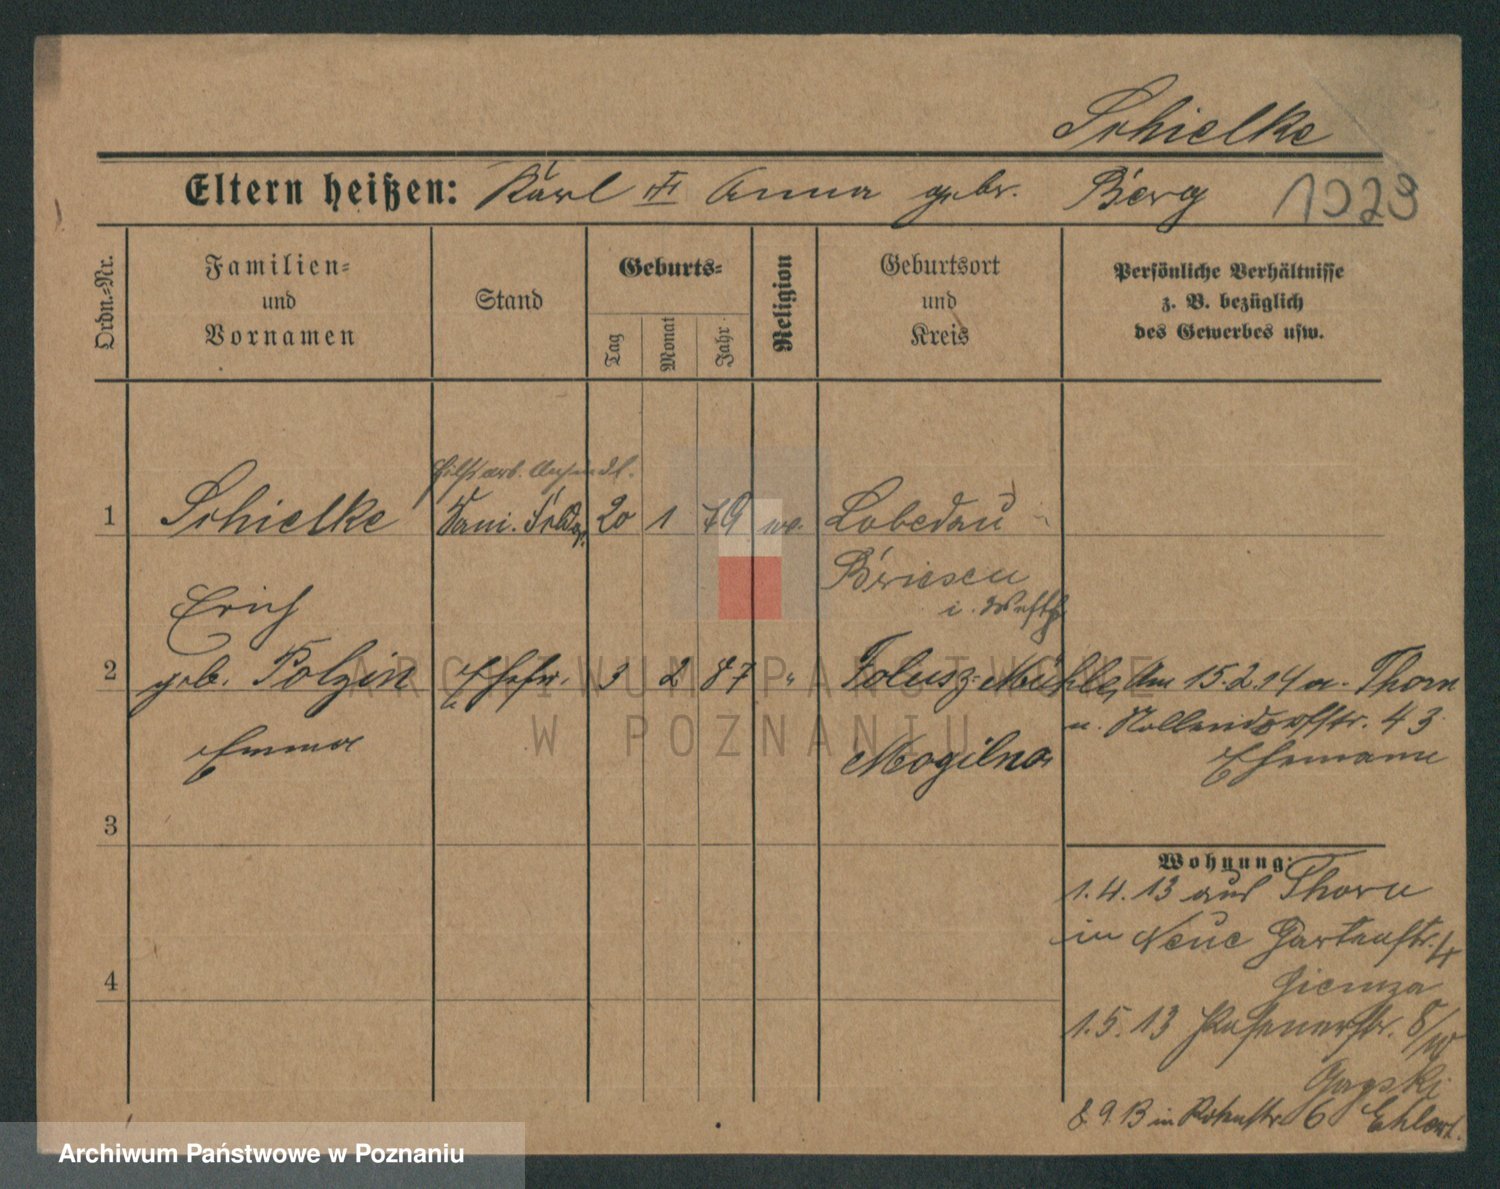 Schielke
Eltern heißen: Karl III Anna gebr. Berg 1929
Ordn.-Nr.
Familien- und Vornamen
Stand
Geburts-
Tag
Monat
Jahr
Religion
Geburtsort und Kreis
Persönliche Verhältnisse z. B. bezüglich des Gewerbes usw.
1 Schielke 20 1 79 Lobedau
Erich Briesen
i. Westpr.
2 geb. Polzin Ehefr. 3 2 87 " Folusz-Mühle, Am 15.2.14 a. Thorn
n. Nollendorfstr. 43
Emma Mogilno Ehemann
3
Wohnung:
1.4.13 aus Thorn
in Neue Gartenstr. 4
4
1.5.13 Posenerstr. 8/IV
8.9.13 in 6
ARCHIWUM PAŃSTWOWE
W POZNANIU
Archiwum Państwowe w Poznaniu